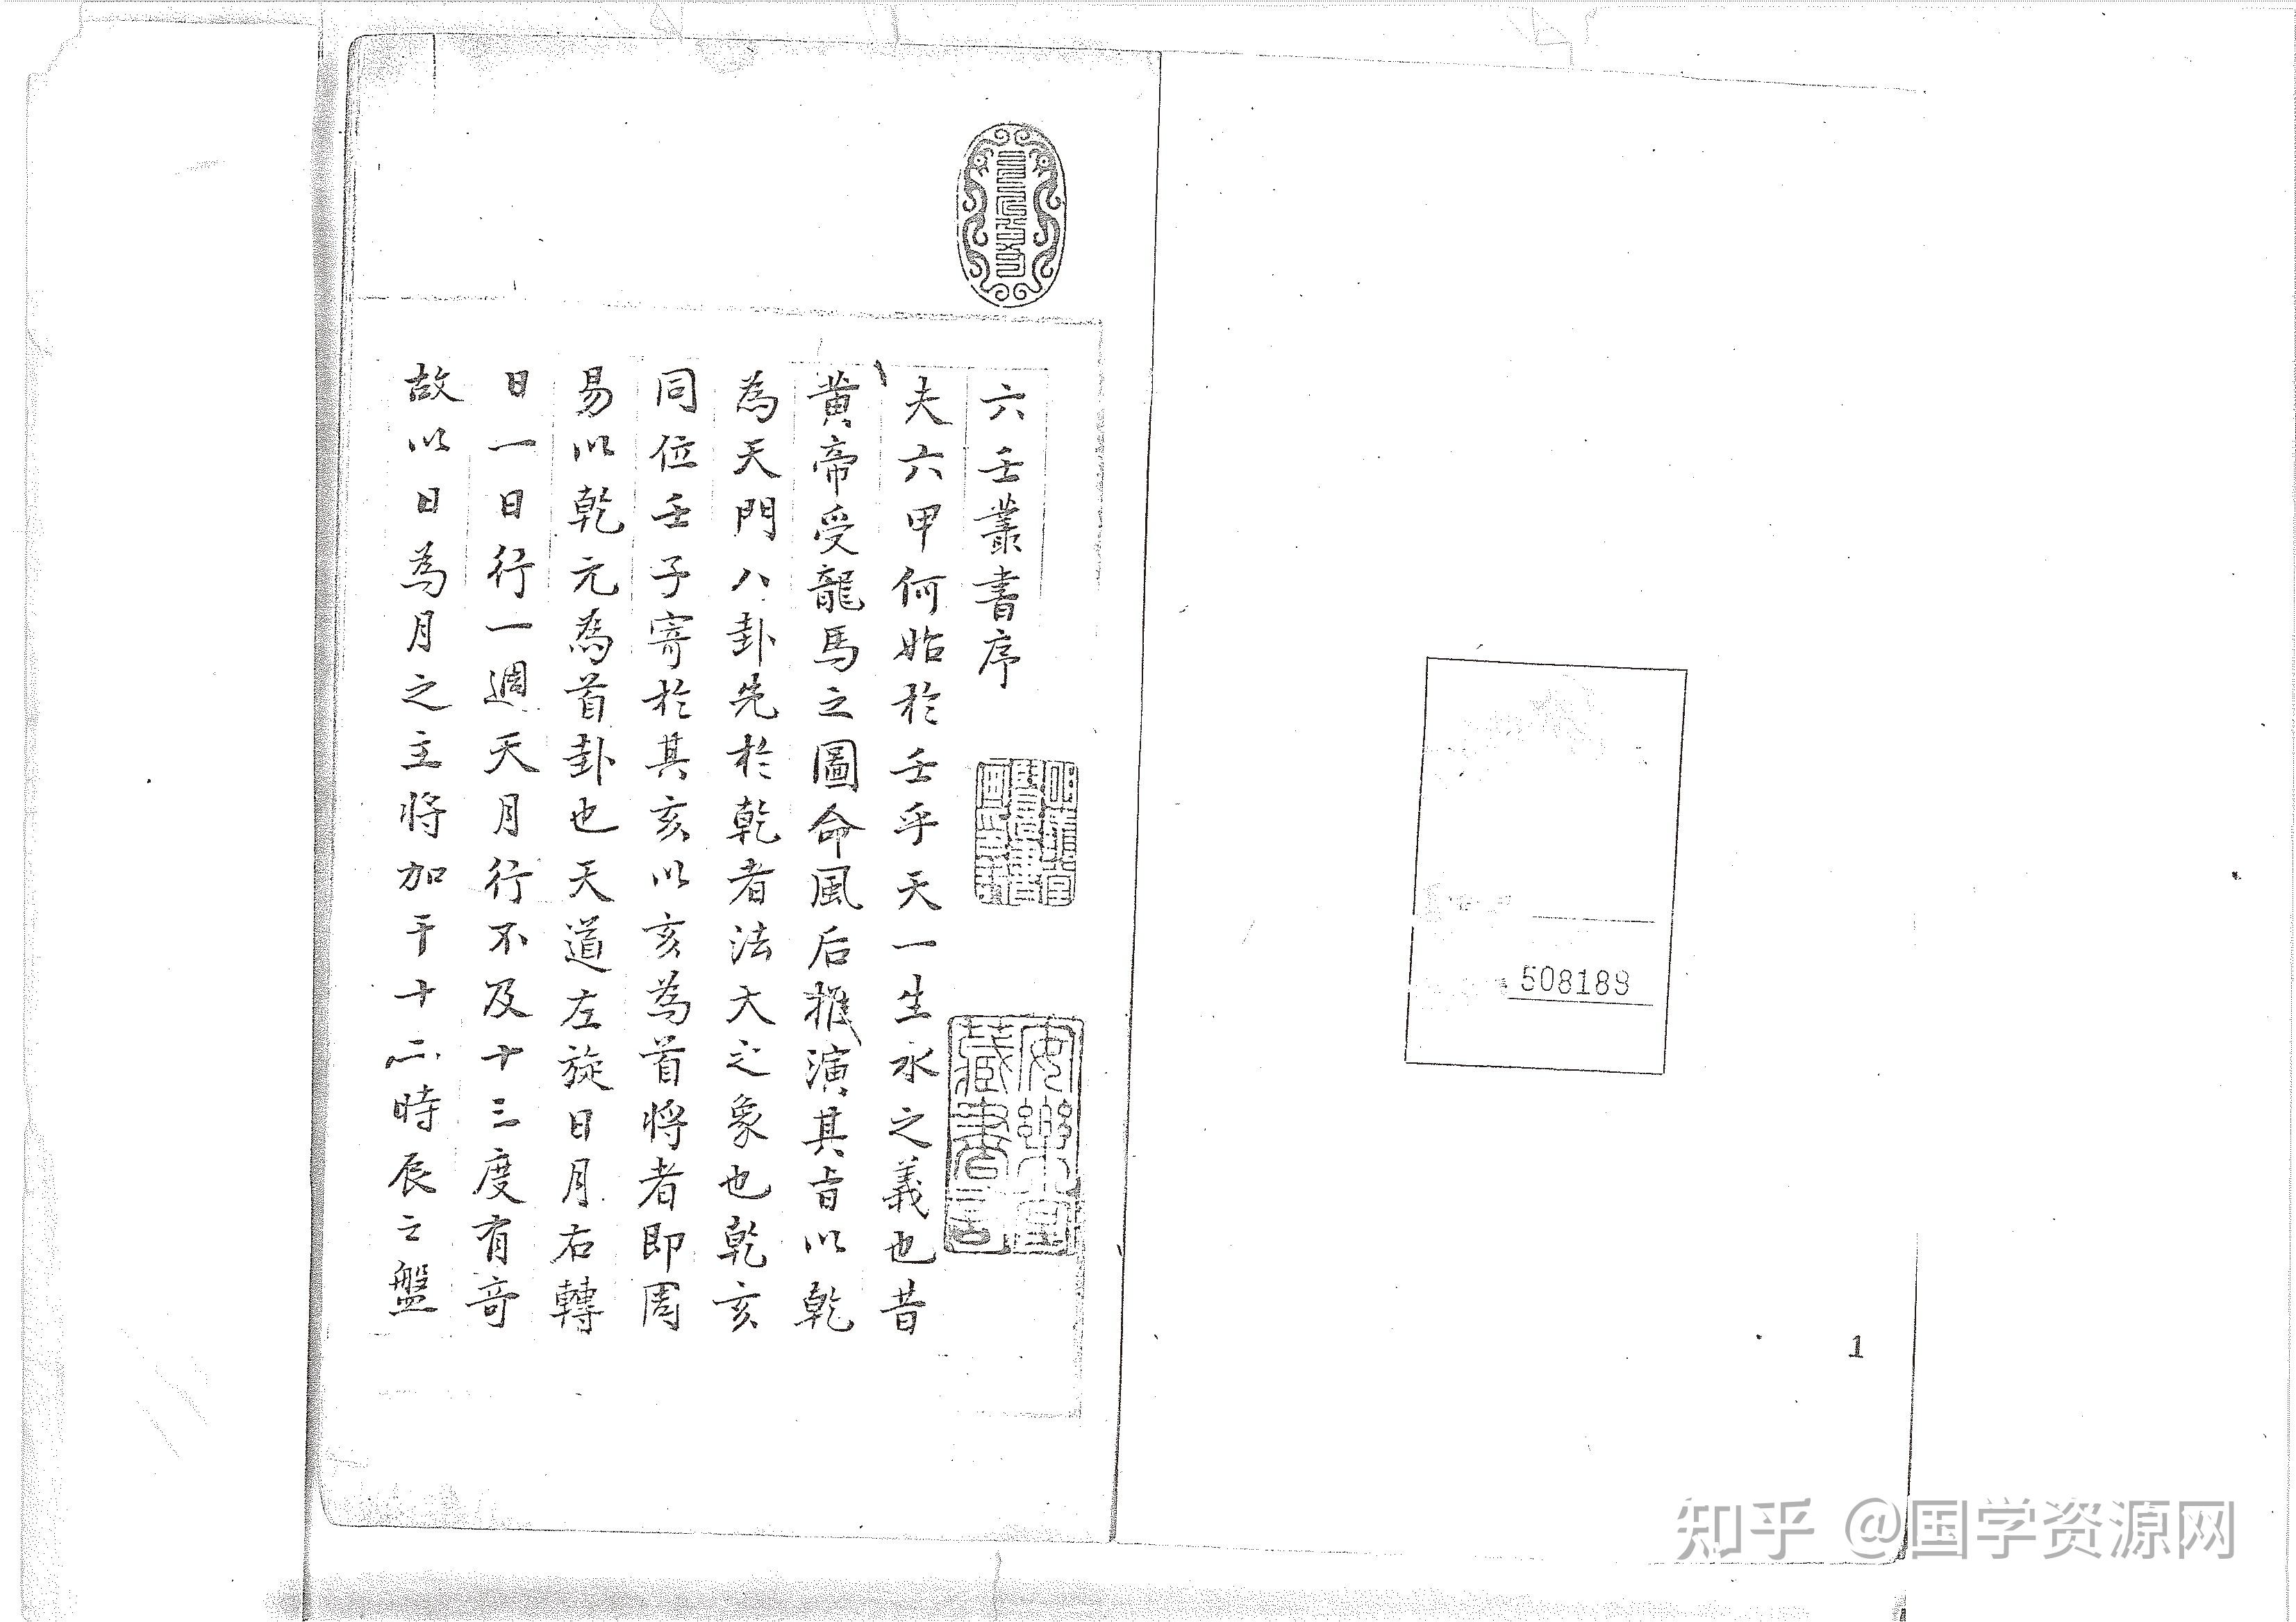 六壬叢書序
夫六甲何始於壬乎天一生水之義也昔
黄帝受龍馬之圖命風后推演其旨以乾
為天門八卦先於乾者法大之象也乾亥
同位壬子寄於其亥以亥為首將者即周
易以乾元為首卦也天道左旋日月右轉
日一日行一週天月行不及十三度有奇
故以日為月之主將加干十二時辰之盤
安樂堂
藏書記
508189
1
知乎 @国学资源网